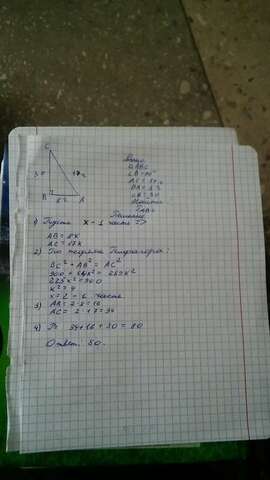 C
30
17x
B
8x
A
Дано
△ABC
∠B = 90°
BC = 30
Найти
Решение
1) Пусть x - 1 часть
AB = 8x
AC = 17x
2) По теореме Пифагора:
BC² + AB² = AC²
900 + 64x² = 289x²
225x² = 900
x² = 4
x = 2 - 1 часть
3) AB = 2·8 = 16
AC = 2·17 = 34
4) P = 34 + 16 + 30 = 80
Ответ: 80.